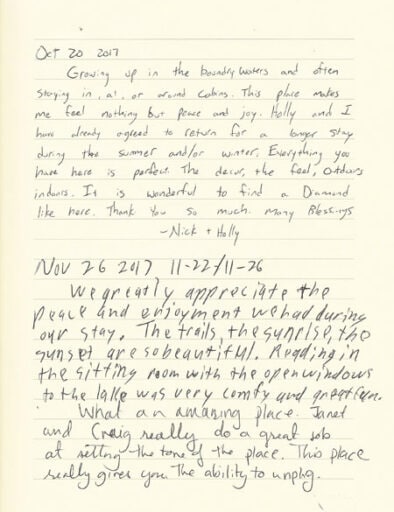 Oct 20 2017
Growing up in the boundry waters and often
staying in, at, or around cabins. This place makes
me feel nothing but peace and joy. Holly and I
have already agreed to return for a longer stay
during the summer and/or winter. Everything you
have here is perfect. The decor, the feel, outdoors
indoors. It is wonderful to find a Diamond
like here. Thank You so much. Many Blessings
~Nick + Holly
Nov 26 2017 11-22/11-26
We greatly appreciate the
peace and enjoyment we had during
our stay. The trails, the sunrise, the
sunset are so beautiful. Reading in
the sitting room with the open windows
to the lake was very comfy and great fun.
What an amazing place. Janet
and Craig really do a great job
at setting the tone of the place. This place
really gives you the ability to unplug.